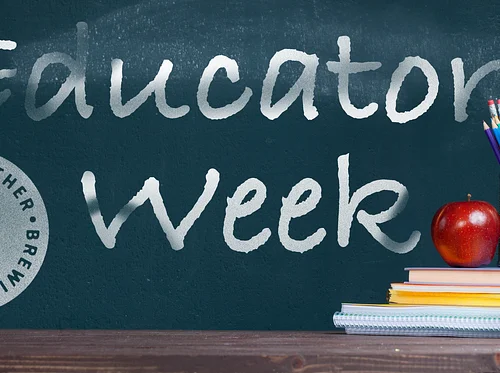 Educator
Week
BREWI